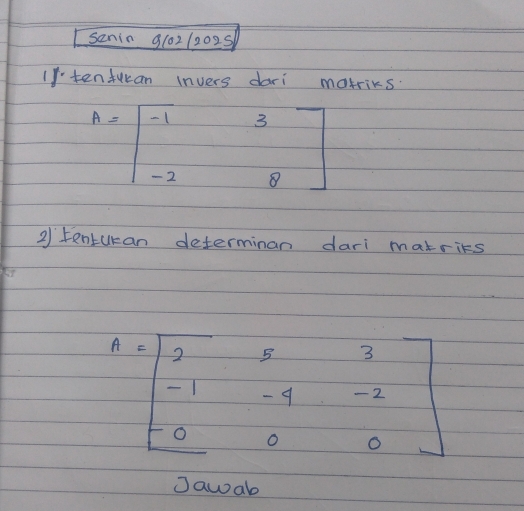 Senin 9/02/2025
1). tentukan invers dari matriks.
A = [ -1 3
-2 8 ]
2) tentukan determinan dari matriks
A = [ 2 5 3
-1 -4 -2
0 0 0 ]
Jawab